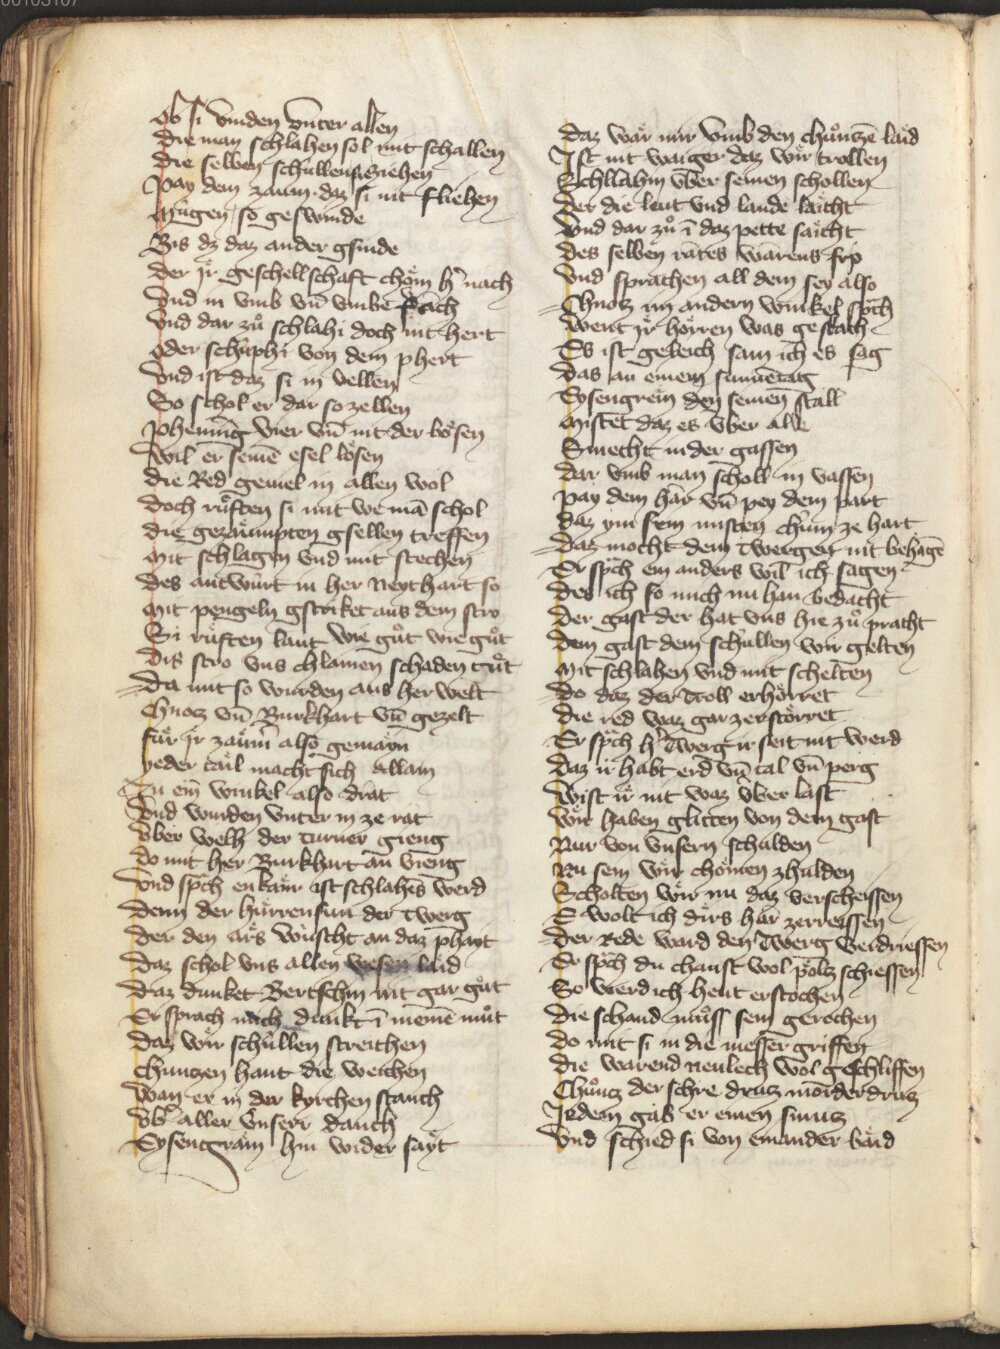 00103107
Ob si vinden vnter allen
Die man schlahen sol mit schallen
Die selben schullens ziehen
Pay dem zaum daz si nit fliehen
Mugen so geswinde
Bis dz daz ander gsinde
Der jr geschellschaft chöm h̾ nach
Vnd in vmb vn̄ vmbe slach
Vnd dar zů schlahi doch nit hert
Oder schuphi von dem phert
Vnd ist daz si in vellen
So schol er dar so zellen
Phenning vier vn̄ nit der bösen
Wil er seinē esel lösen
Die Red geuiel in allen wol
Doch rüften si mit we mā schol
Die gezäumpten gsellen treffen
Mit schlagen vnd mit stechen
Des antwürt in her Neythart so
Mit pengeln gstriket aus dem stro
Si rüften laut wie gůt wie gůt
Dis stro vns chlainen schaden tůt
Da mit so wurden aus her welt
Chnotz vn̄ Burkhart vn̄ gezelt
Für jr zäum̄ also gemäin
Yeder tail macht sich allain
Zu eim̄ winkel also drat
Vnd wurden vnter in ze rat
Vber welh der turner gieng
Do mit her Burkhart an vieng
Vnd sp̄ch enkair ist schlahēs werd
Denn der hürrensun der Twerg
Der den ars wüscht an daz phant
Daz schol vns allen wesen laid
Daz dunket Bertschin nit gar gůt
Er sprach mich dunkt ī meinē můt
Daz wir schüllen streichen
Chuntzen haut die weichen
Wan er in der kyrchen stanch
Vb̾ aller vnserr danch
Eysengrain hin wider sayt
Daz wär mir vmb den chůnzē laid
Ist nit waiger daz wir trollen
Schllahin vber seinen schollen
Der die leut vnd lande laicht
Vnd dar zů ī daz pette saicht
Des selben rātes wārens fro
Vnd sprachen all dem sey also
Chnotz im andern winkel sp̄ch
Went jr hörren was geschach
Es ist geleich sam ich es sag
Das an einem sunnētag
Eysengrein den seinen stall
Mistet daz es vber all
Smecht in der gassen
Dar vmb man scholl in vassen
Pay dem har vn̄ pey dem part
Daz ym sein misten chüm ze hart
Daz mocht dem Twergen nit behagē
Er sp̄ch ein anders wil ich sagen
Des ich so mich nu han bedacht
Der gast der hat vns hie zů pracht
Dem gast dem schüllen wir gelten
Mit schlahen vnd mit schelten
Do daz der Troll erhörret
Die red waz gar zerstörret
Er sp̄ch h̾ Twerg ir seit nit werd
Daz ir habt erd vn̄ tal vn̄ perg
Wist ir nit waz vber last
Wir haben glitten von dem gast
Nur von vnsern schulden
Nu sein wir chomen zhulden
Scholten wir nu daz verscheissen
E wolt ich dirs har zerreissen
Der Rede ward den Twerg verdriessen
Er sp̄ch du chanst wol pöltz schiessen
So werd ich heut erstochen
Die schand můss sein gerochen
Do mit si in die messer griffen
Die warend neulech wol gschliffen
Chůntz der schre drutz mörder drutz
Jedem gab er einen smutz
Vnd schied si von einander baid